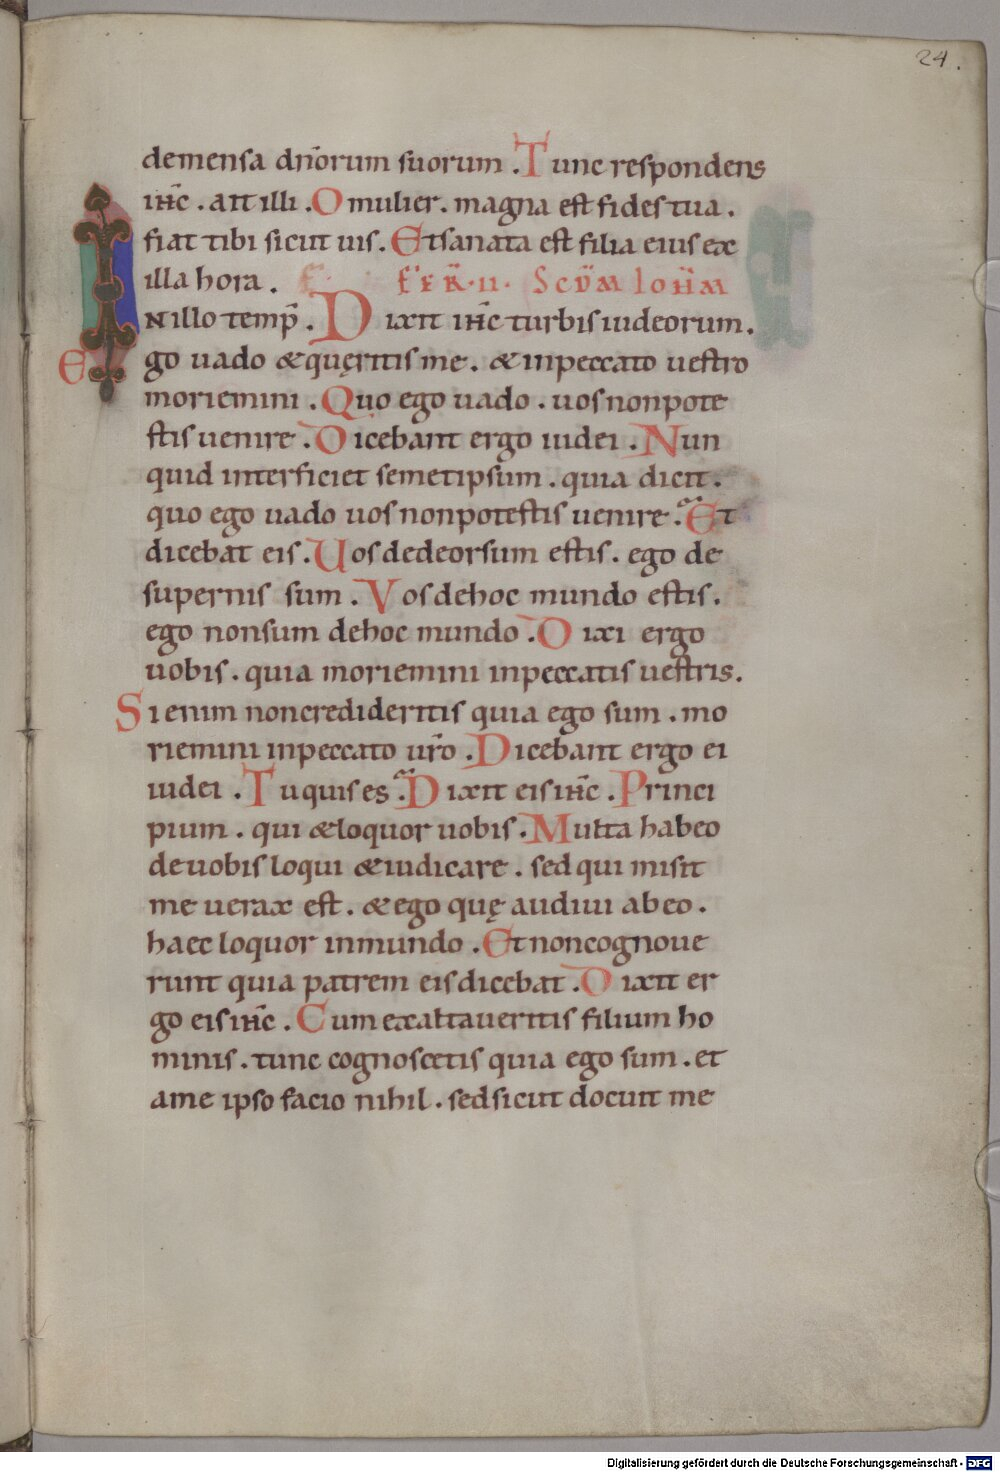 24.
demensa dñorum suorum . Tunc respondens
ihc̄ . ait illi . O mulier . magna est fides tua .
fiat tibi sicut uis . Et sanata est filia eius ex
illa hora . FER̄ · II · Scd̄M IohM̄
IN illo temp̄ . Dixit ihc̄ turbis iudeorum .
Ego uado &quęritis me . &inpeccato uestro
moriemini . Quo ego uado . uos nonpote
stis uenire . Dicebant ergo iudei . Nun
quid interficiet semetipsum . quia dicit .
quo ego uado uos nonpotestis uenire . Et
dicebat eis . Uos dedeorsum estis . ego de
supernis sum . Vos dehoc mundo estis .
ego nonsum dehoc mundo . Dixi ergo
uobis . quia moriemini inpeccatis uestris .
Si enim noncredideritis quia ego sum . mo
riemini inpeccato ur̄o . Dicebant ergo ei
iudei . Tu quis es . Dixit eis ihc̄ . Princi
pium . qui &loquor uobis . Multa habeo
deuobis loqui &iudicare . sed qui misit
me uerax est . &ego quę audiui ab eo .
haec loquor inmundo . Et noncognoue
runt quia patrem eis dicebat . Dixit er
go eis ihc̄ . Cum exaltaueritis filium ho
minis . tunc cognoscetis quia ego sum . et
ame ipso facio nihil . sed sicut docuit me
Digitalisierung gefördert durch die Deutsche Forschungsgemeinschaft - DFG